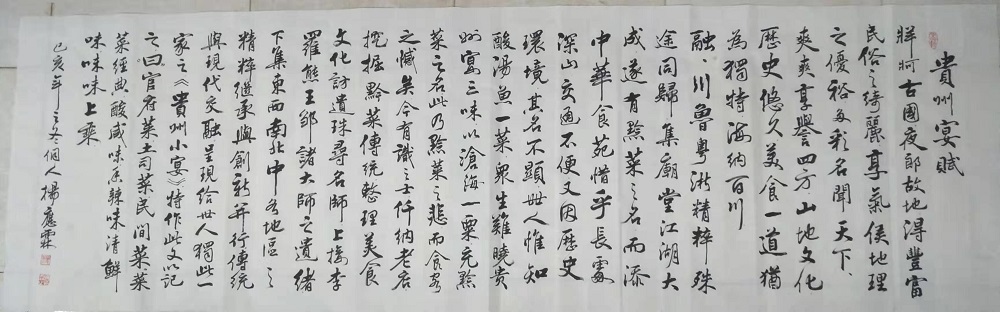 貴州宴賦
牂牁古國夜郎故地得豐富
民俗之綺麗享氣侯地理
之優裕多彩名聞天下
爽爽享譽四方山地文化
歷史悠久美食一道猶
為獨特海納百川
融川魯粵淅精粹殊
途同歸集廟堂江湖大
成遂有黔菜之名而添
中華食苑惜乎長處
深山交通不便又因歷史
環境其名不顯世人惟知
酸湯魚一菜衆生難曉貴
州宴三味以滄海一粟充黔
菜之名此乃黔菜之悲而食客
之憾矣今有識之士仟纳老店
挖掘黔菜傳统整理美食
文化訪遺珠尋名師上接李
羅熊王鄒諸大師之遺緒
下集東西南北中各地區之
精粹继承與創新并行傳统
與現代交融呈現给世人獨此一
家之《貴州小宴》特作此文以記
之曰官府菜土司菜民間菜菜
菜經典酸咸味麻辣味清鮮
味味味上乘
己亥年之冬個人楊應霖